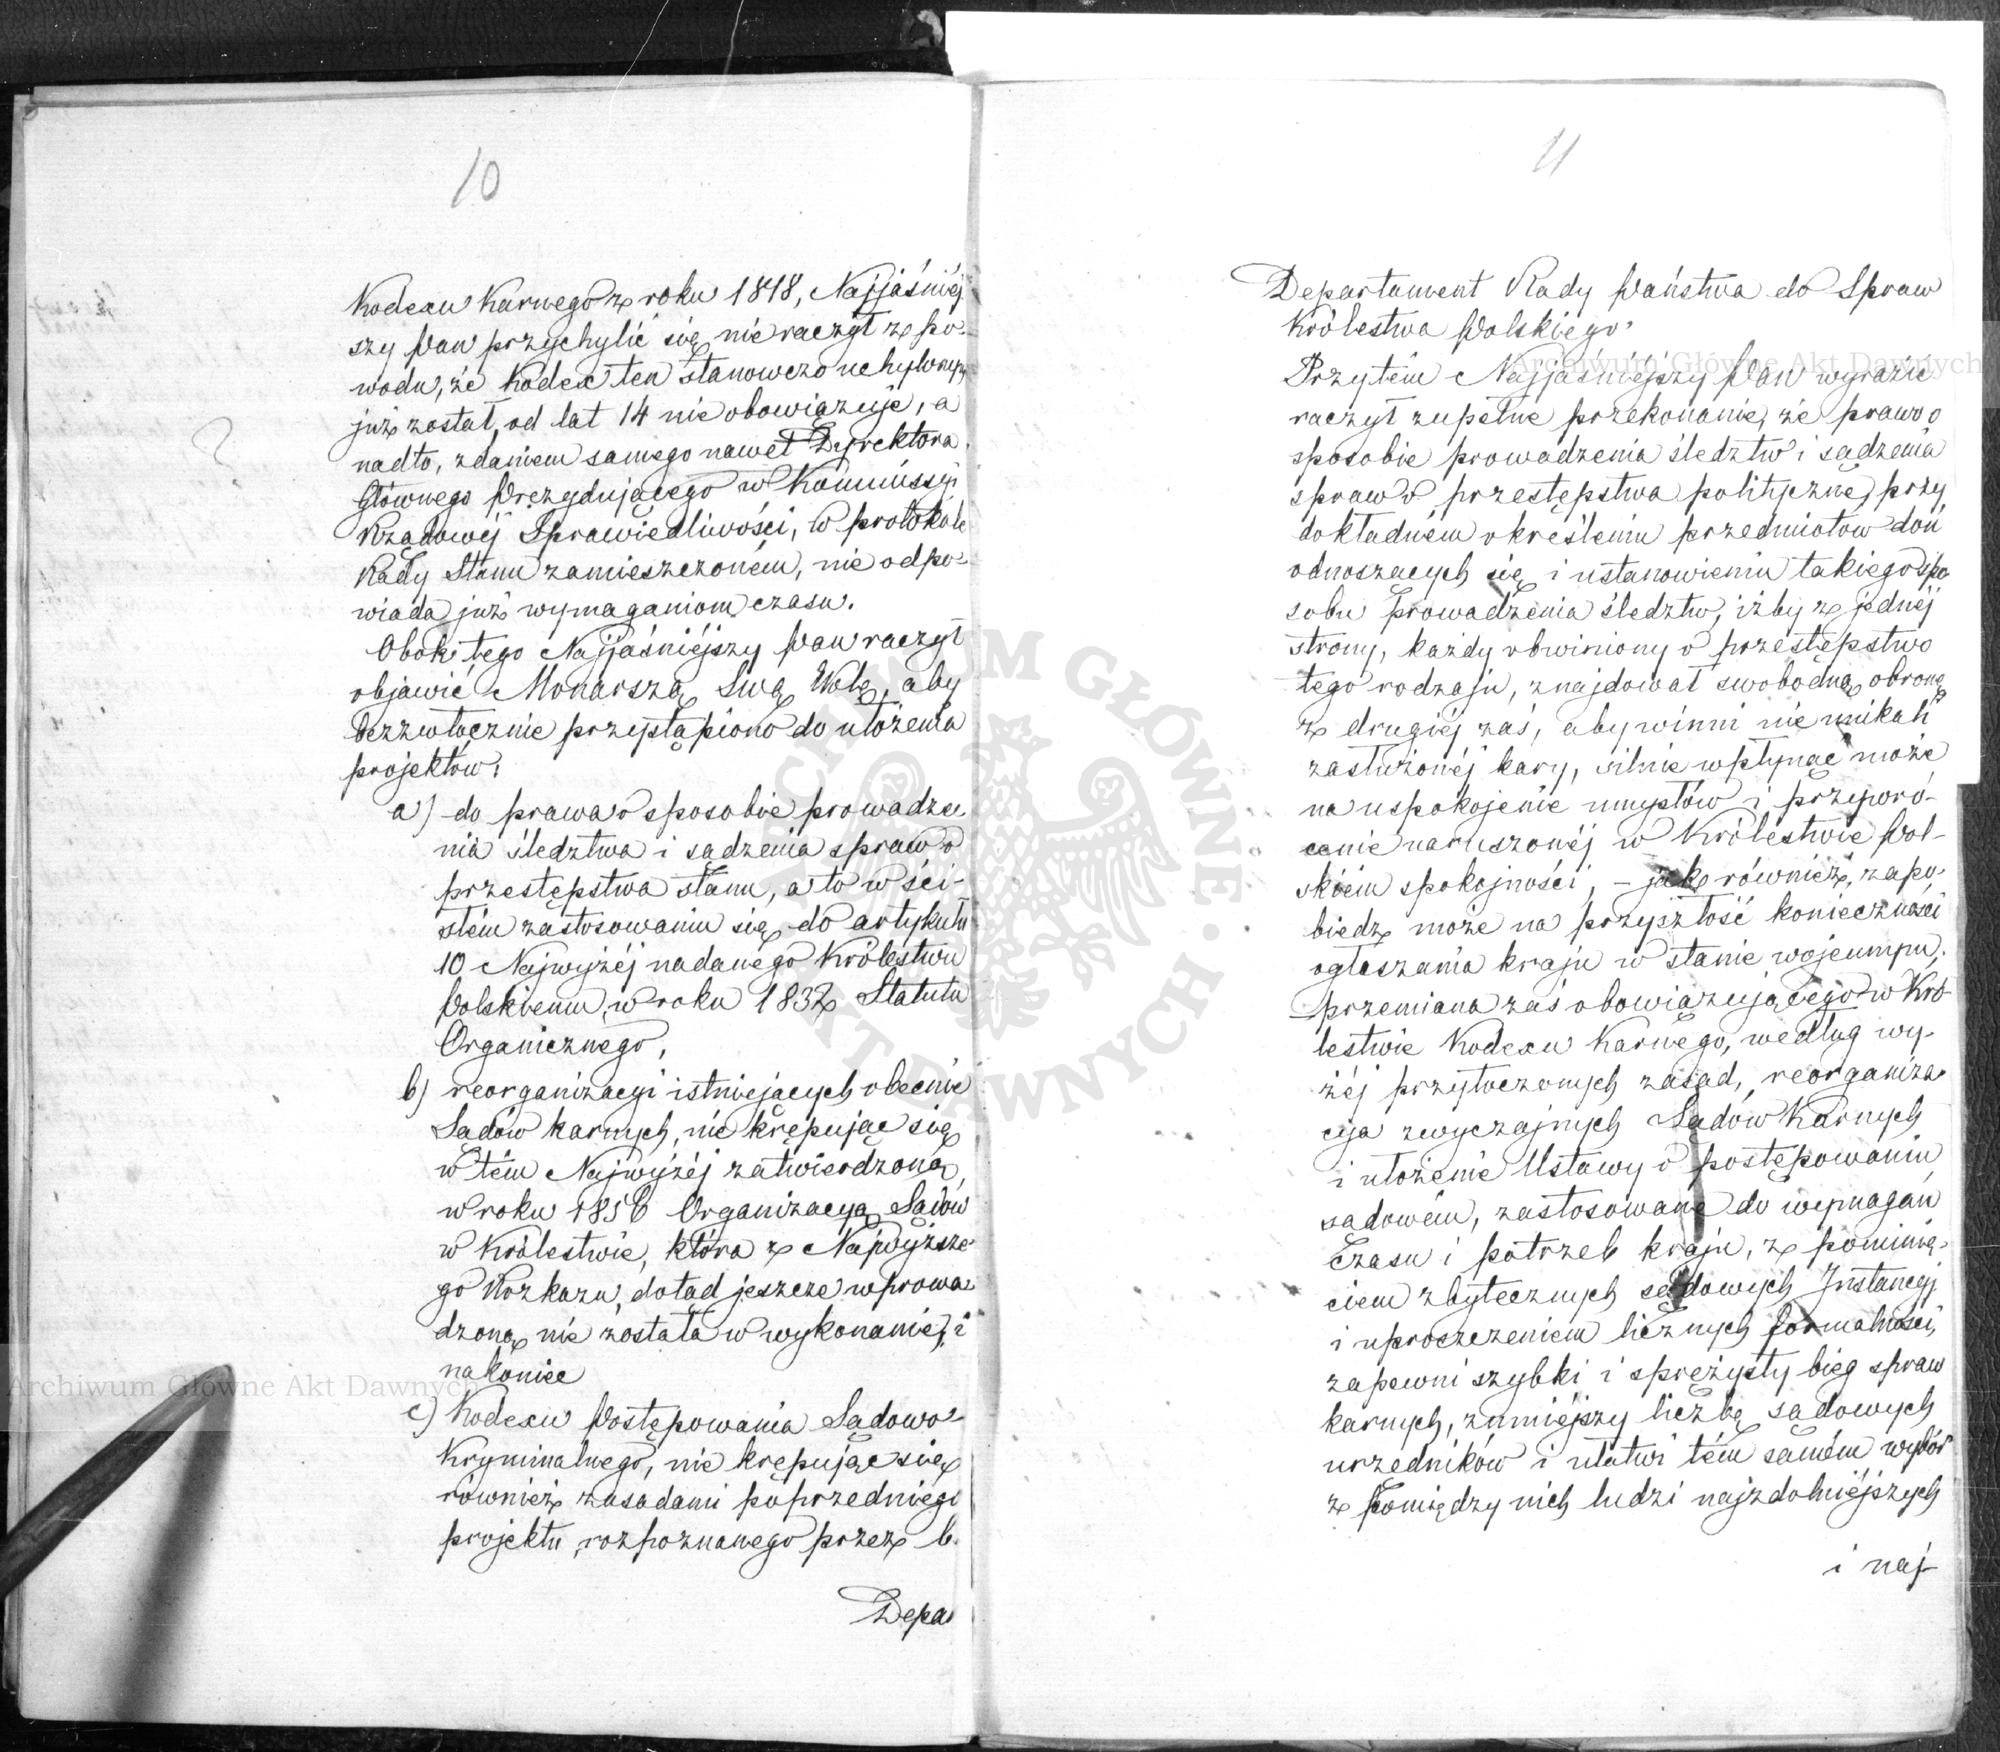 10
Kodexu Karnego z roku 1818, Najjaśniéj-
szy Pan przychylić się nie raczył z po-
wodu, że Kodex ten stanowczo uchylonym
już został, od lat 14 nie obowiązuje, a
nadto, zdaniem samego nawet Dyrektora
Głównego Prezydującego w Kommissyi
Rządowéj Sprawiedliwości, w protokóle
Rady Stanu zamieszczoném, nie odpo-
wiada już wymaganiom czasu.
Obok tego Najjaśniéjszy Pan raczył
objawić Monarszą Swą Wolę, aby
bezzwłocznie przystąpiono do ułożenia
projektów:
a) do prawa o sposobie prowadze-
nia śledztwa i sądzenia spraw o
przestępstwa stanu, a to w ści-
słém zastosowaniu się do artykułu
10 Najwyżéj nadanego Królestwu
Polskiemu w roku 1832 Statutu
Organicznego,
b) reorganizacyi istniejących obecnie
Sądów karnych, nie krępując się
w tém Najwyżéj zatwierdzoną
w roku 1856 Organizacyą Sądów
w Królestwie, która z Najwyższe-
go Rozkazu, dotąd jeszcze wprowa-
dzoną nie została w wykonanie, i
nakoniec
c) Kodexu Postępowania Sądowo-
Kryminalnego, nie krępując się
również zasadami poprzedniego
projektu, rozpoznanego przez b.
Depa
11
Departament Rady Państwa do Spraw
Królestwa Polskiego.
Przytém Najjaśniéjszy Pan wyrazić
raczył zupełne przekonanie, że prawo o
sposobie prowadzenia śledztw i sądzenia
spraw o przestępstwa polityczne, przy
dokładném określeniu przedmiotów doń
odnoszących się i ustanowieniu takiego spo-
sobu prowadzenia śledztw, iżby z jednéj
strony, każdy obwiniony o przestępstwo
tego rodzaju, znajdował swobodną obronę
z drugiéj zaś, aby winni nie unikali
zasłużonéj kary, silnie wpłynąć może
na uspokojenie umysłów i przywró-
cenie naruszonéj w Królestwie Pol-
skiém spokojności, – jak również, zapo-
biedz może na przyszłość konieczności
ogłaszania kraju w stanie wojennym;
przemiana zaś obowiązującego w Kró-
lestwie Kodexu Karnego, według wy-
żéj przytoczonych zasad, reorganiza-
cya zwyczajnych Sądów Karnych
i ułożenie Ustawy o postępowaniu
sądowém, zastosowane do wymagań
czasu i potrzeb kraju, z pominię-
ciem zbytecznych sądowych Instancyj
i uproszczeniem licznych formalności,
zapewni szybki i sprężysty bieg spraw
karnych, zmniejszy liczbę sądowych
urzędników i ułatwi tém samém wybór
z pomiędzy nich ludzi najzdolniéjszych
i naj-
Archiwum Główne Akt Dawnych
Archiwum Główne Akt Dawnych
ARCHIWUM GŁÓWNE AKT DAWNYCH